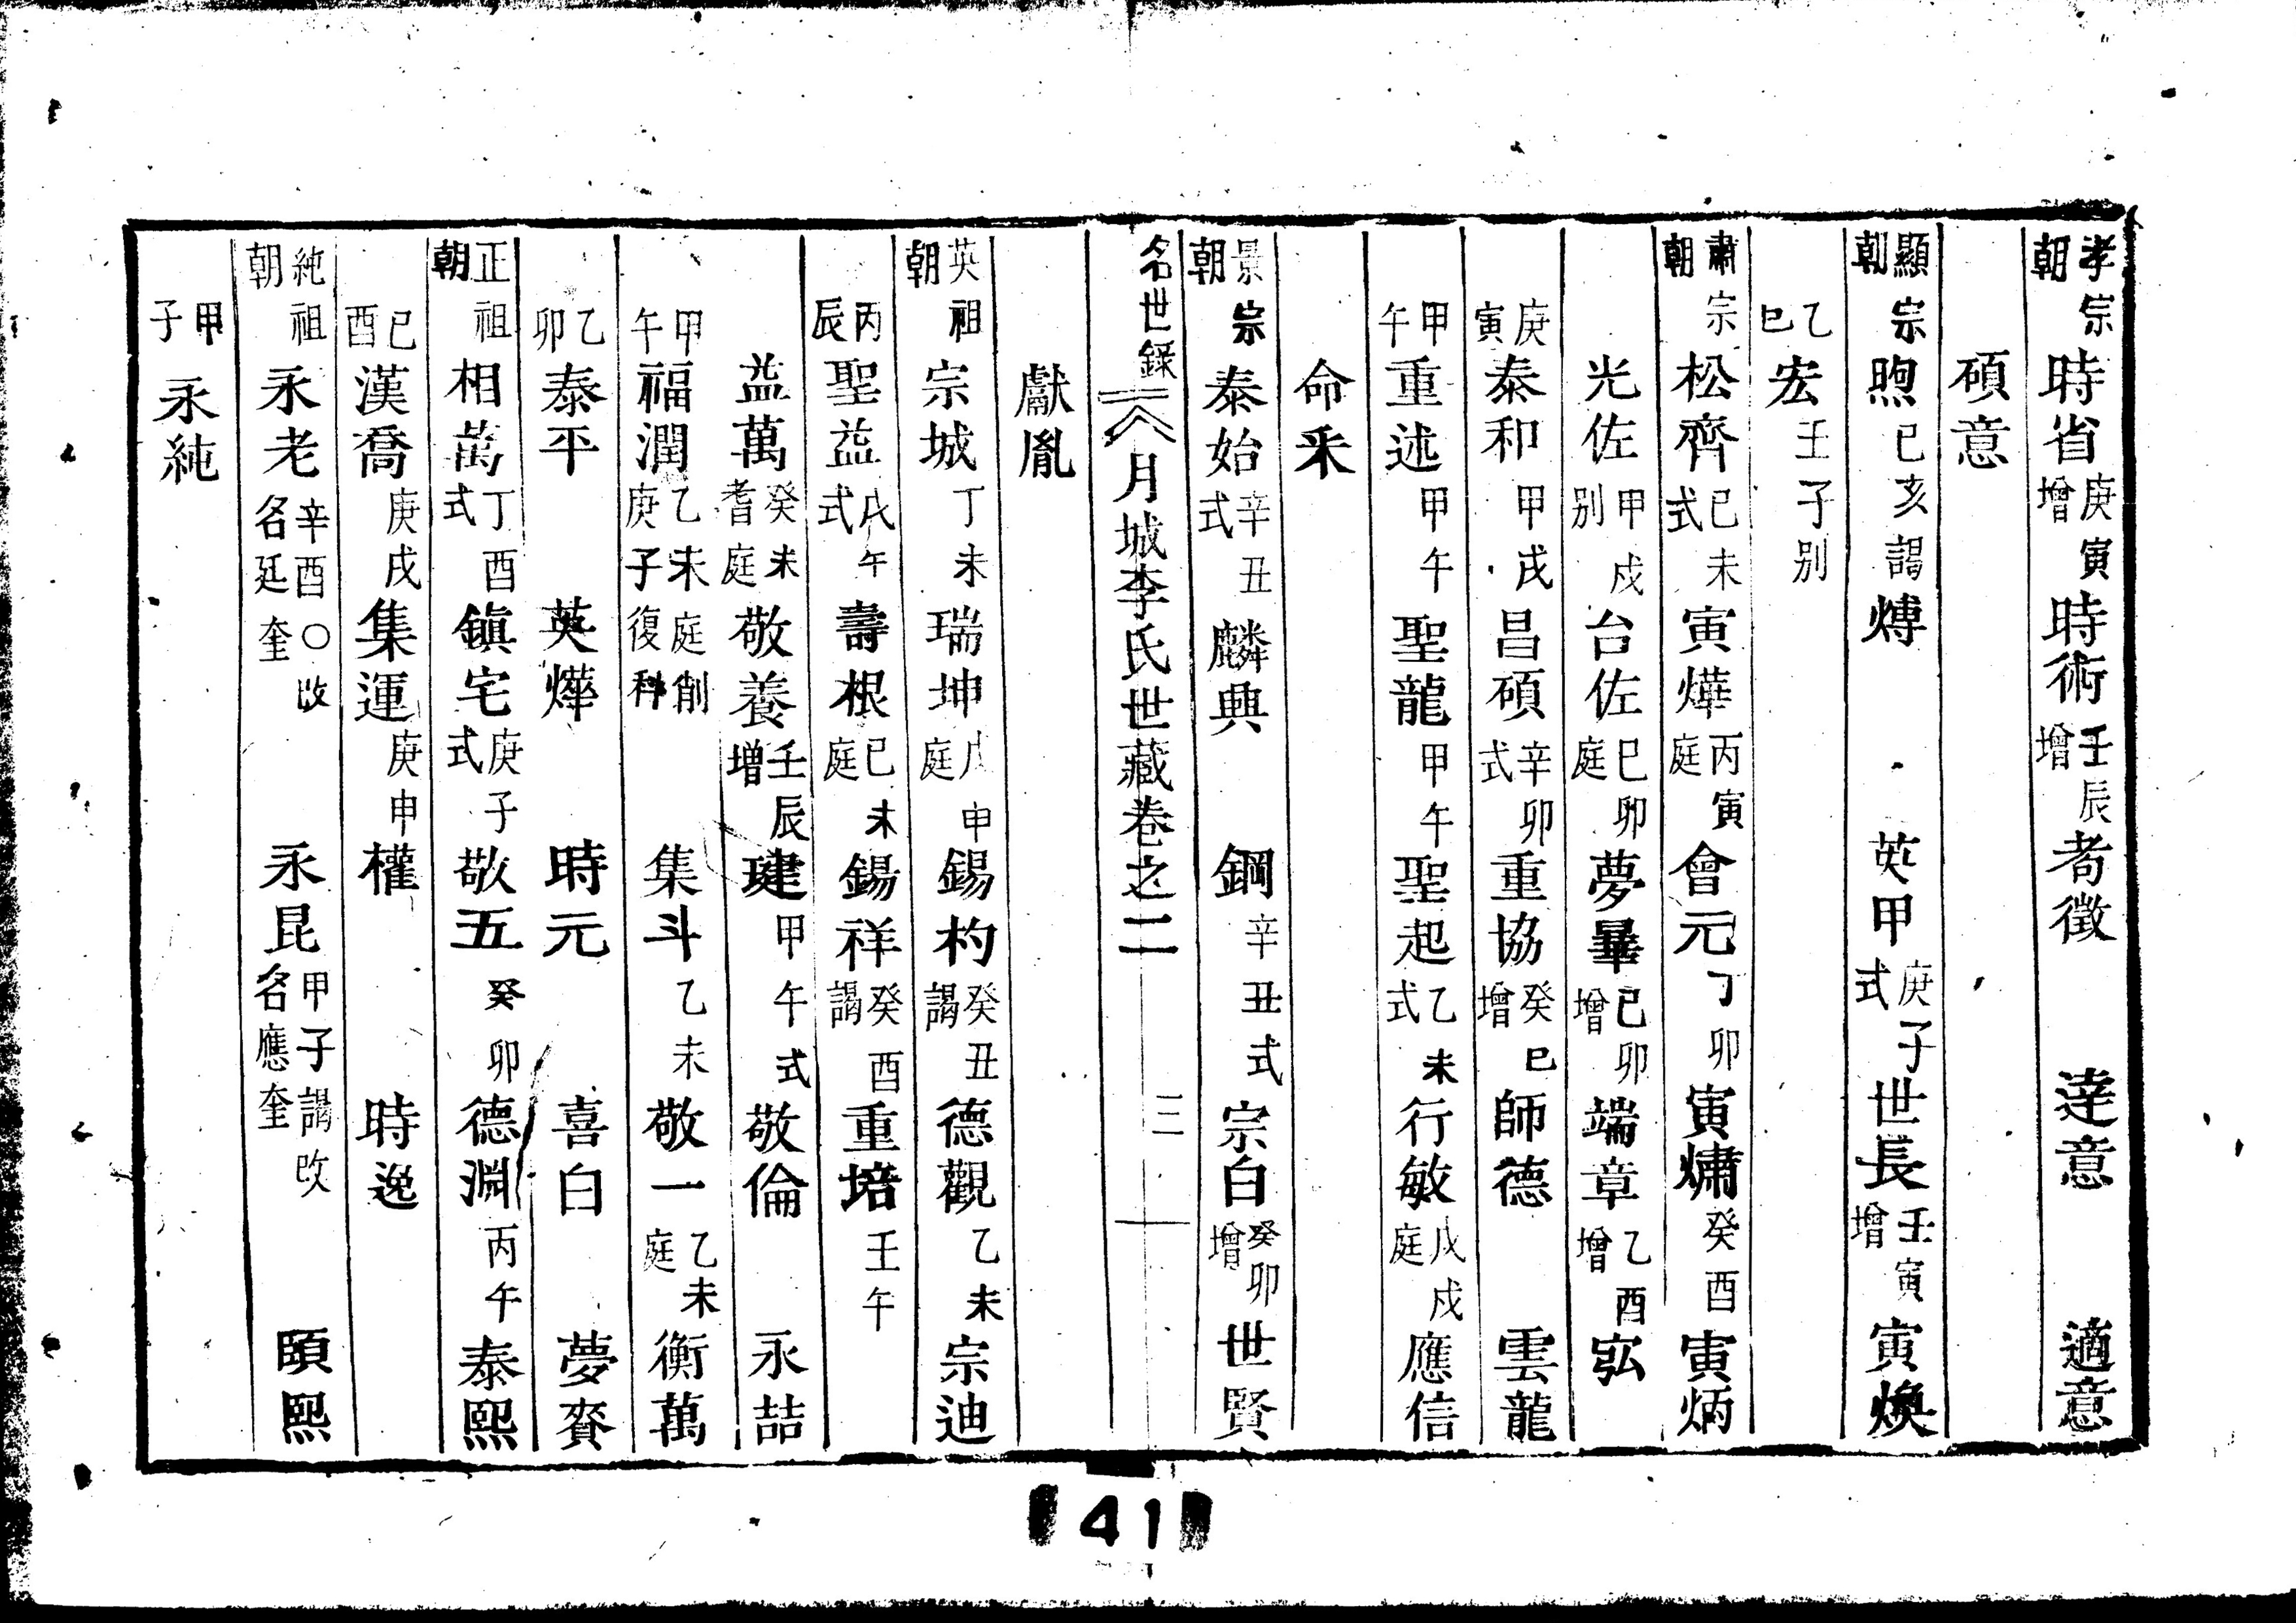 孝宗朝 時省 庚寅增 時術 壬辰增 耇徵 達意 適意
碩意
顯宗朝 煦 己亥謁 煿 英甲 庚子式 世長 壬寅增 寅煥
乙巳 宏 壬子別
肅宗朝 松齊 己未式 寅燁 丙寅庭 會元 丁卯 寅爀 癸酉 寅炳
光佐 甲戌別 台佐 己卯庭 夢畢 己卯增 端章 乙酉增 弘
庚寅 泰和 甲戌 昌碩 辛卯式 重協 癸巳增 師德 雲龍
甲午 重述 甲午 聖龍 甲午 聖起 乙未式 行敏 戊戌庭 應信
命采
景宗朝 泰始 辛丑式 麟興 鋼 辛丑式 宗白 癸卯增 世賢
名世錄 月城李氏世藏卷之二 三
獻胤
英祖朝 宗城 丁未 瑞坤 戊申庭 錫杓 癸丑謁 德觀 乙未 宗迪
丙辰 聖益 戊午式 壽根 己未庭 錫祥 癸酉謁 重培 壬午
益萬 癸未耆庭 敬養 壬辰增 建 甲午式 敬倫 永喆
甲午 福潤 乙未庭削庚子復科 集斗 乙未 敬一 乙未庭 衡萬
乙卯 泰平 英燁 時元 喜白 夢賚
正祖朝 相萬 丁酉式 鎭宅 庚子式 敬五 癸卯 德淵 丙午 泰熙
己酉 漢喬 庚戌 集運 庚申 權 時逸
純祖朝 永老 辛酉○改名廷奎 永昆 甲子謁改名應奎 頤熙
甲子 永純
41